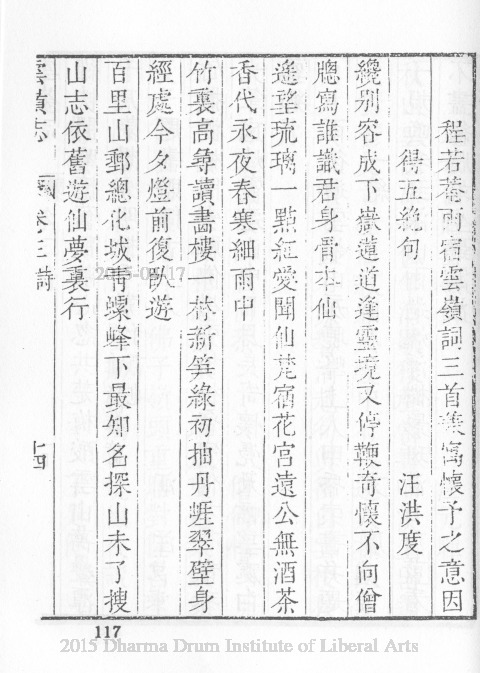 程若菴雨宿雲嶺詞三首兼寓懷予之意因
得五絕句　汪洪度
纔別容成下嶽蓮道逢靈境又停鞭奇懷不向僧
牕寫誰識君身骨本仙
遙望琉璃一點紅愛聞仙梵宿花宮遠公無酒茶
香代永夜春寒細雨中
竹裏高尋讀畵樓　林新笋綠初抽丹崖翠壁身
經處今夕燈前復臥遊
百里山郵總化城靑螺峰下最知名探山未了搜
山志依舊遊仙夢裏行
雲嶺志　卷三　詩　十四
117
2015 Dharma Drum Institute of Liberal Arts